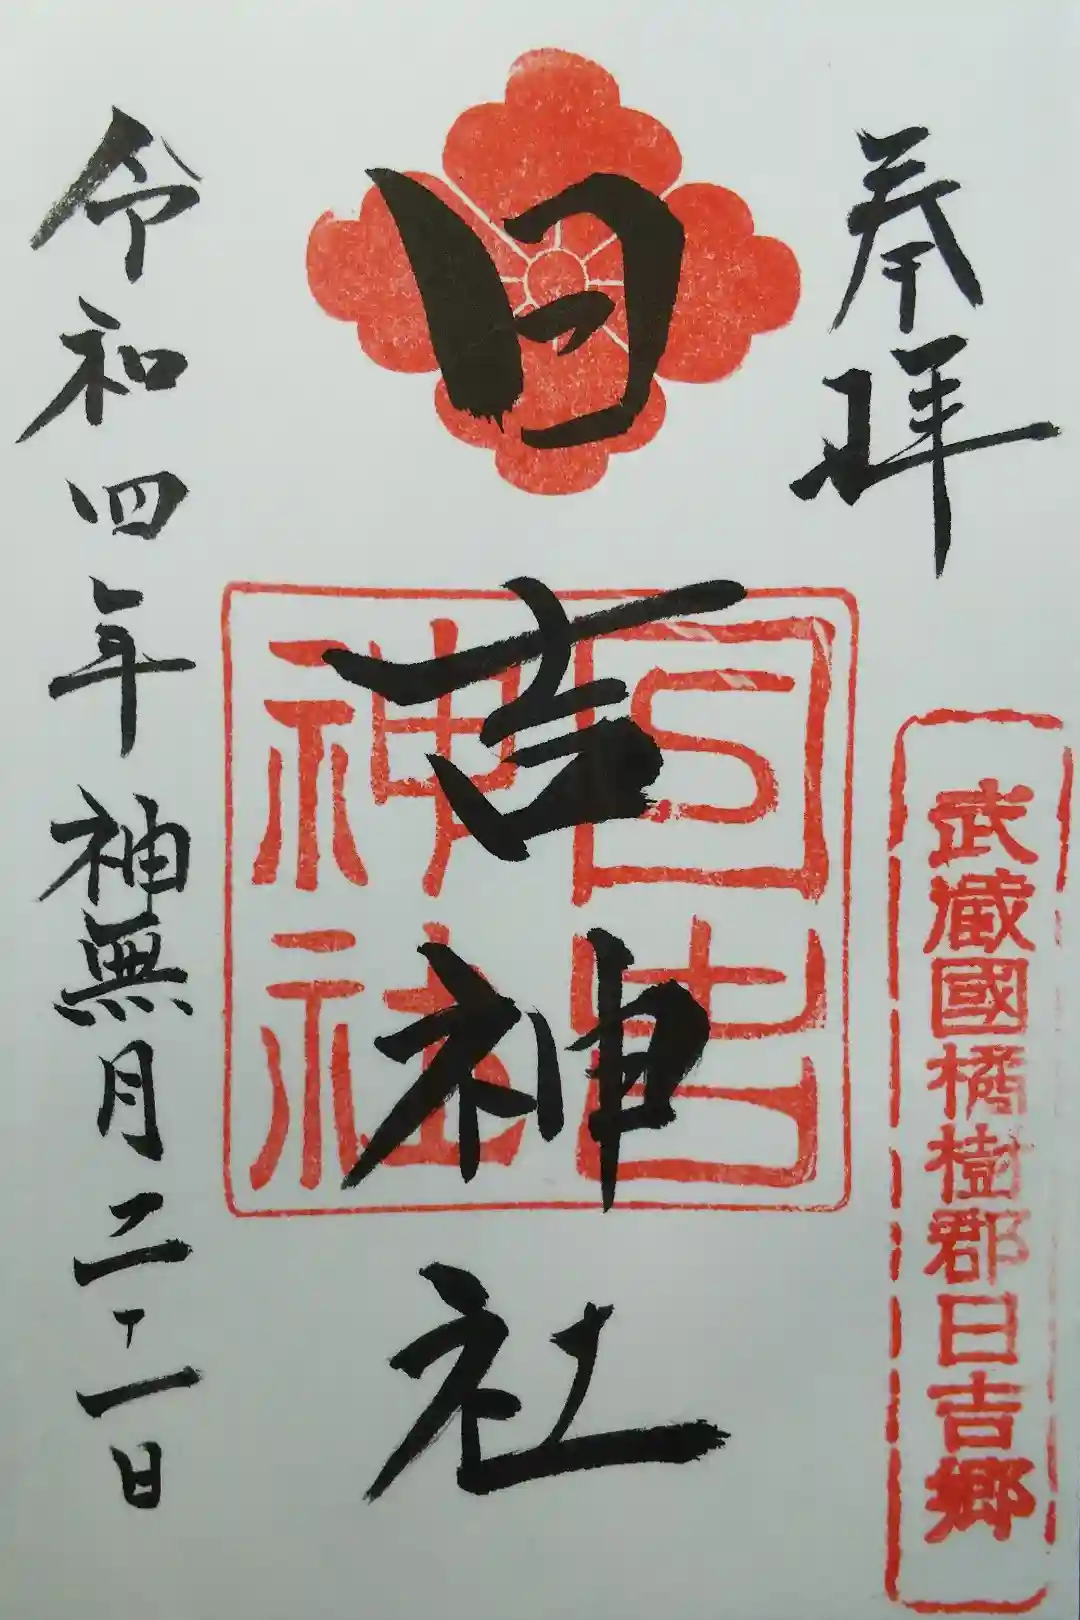 奉拝
武蔵國橘樹郡日吉郷
日吉神社
日吉
神社
令和四年神無月二十一日